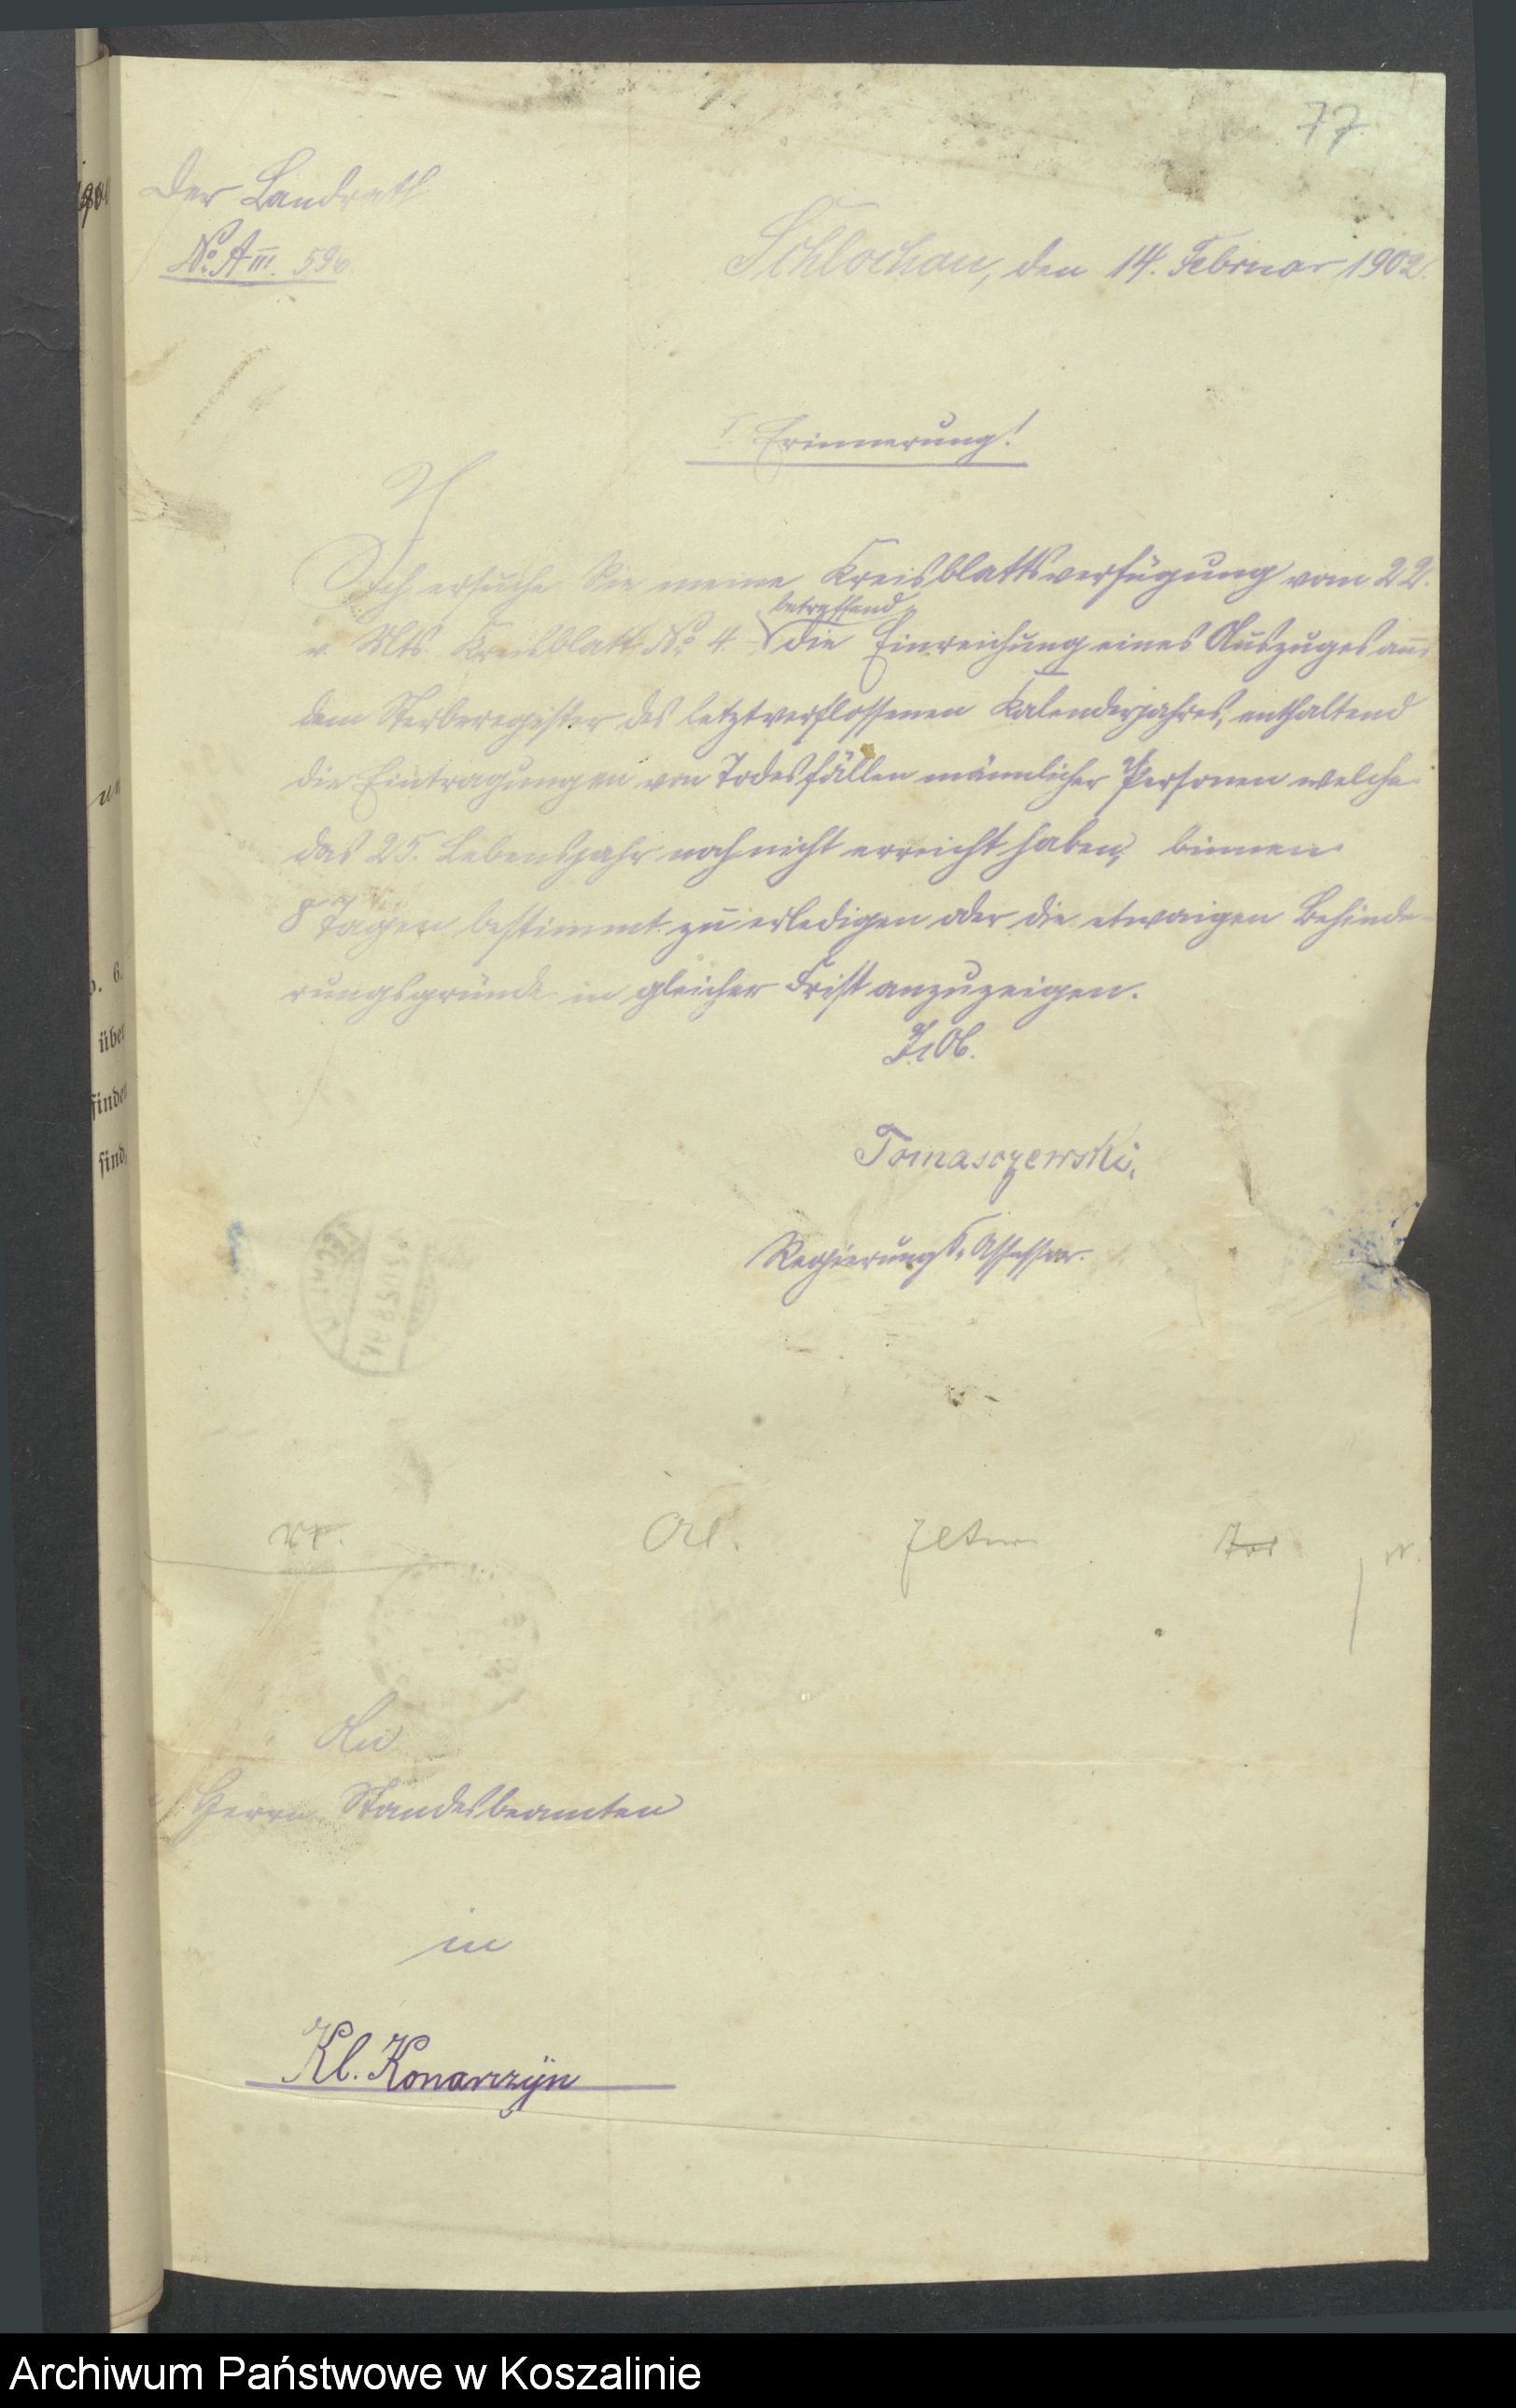 77
Der Landrath
No. A III. 596.
Schlochau, den 14. Februar 1902.
I. Erinnerung!
Ich ersuche Sie meine Kreisblattsverfügung vom 22.
v. Mts. Kreisblatt No. 4.
betreffend
die Einreichung eines Auszuges aus
dem Sterberegister des letztverflossenen Kalenderjahres, enthaltend
die Eintragungen von Todesfällen männlicher Personen welche
das 25. Lebensjahr noch nicht erreicht haben, binnen
8 Tagen bestimmt zu erledigen oder die etwaigen Behinde-
rungsgründe in gleicher Frist anzuzeigen.
Tomasczewski,
Regierungs-Assessor.
An
Herrn Standesbeamten
in
Kl. Konarczyn
über
finden
sind,
Archiwum Państwowe w Koszalinie